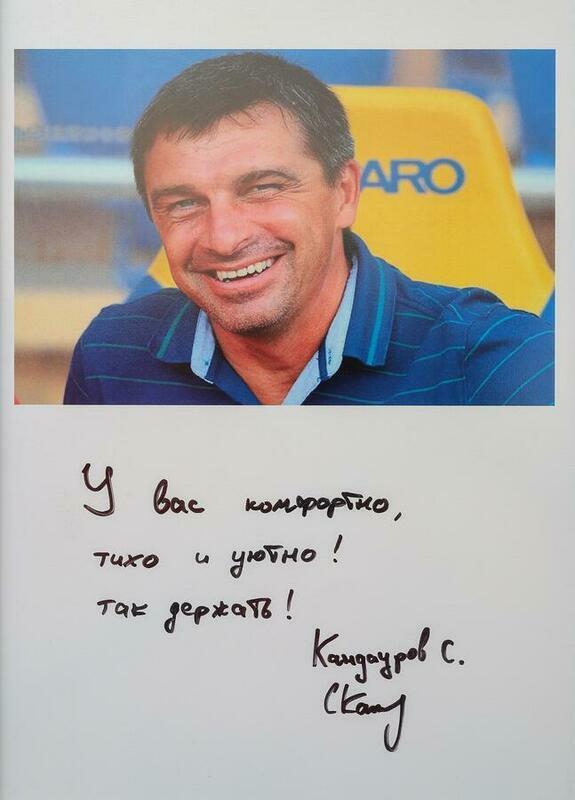 ARO
У вас комфортно,
тихо и уютно!
так держать!
Кандауров С.
СКан